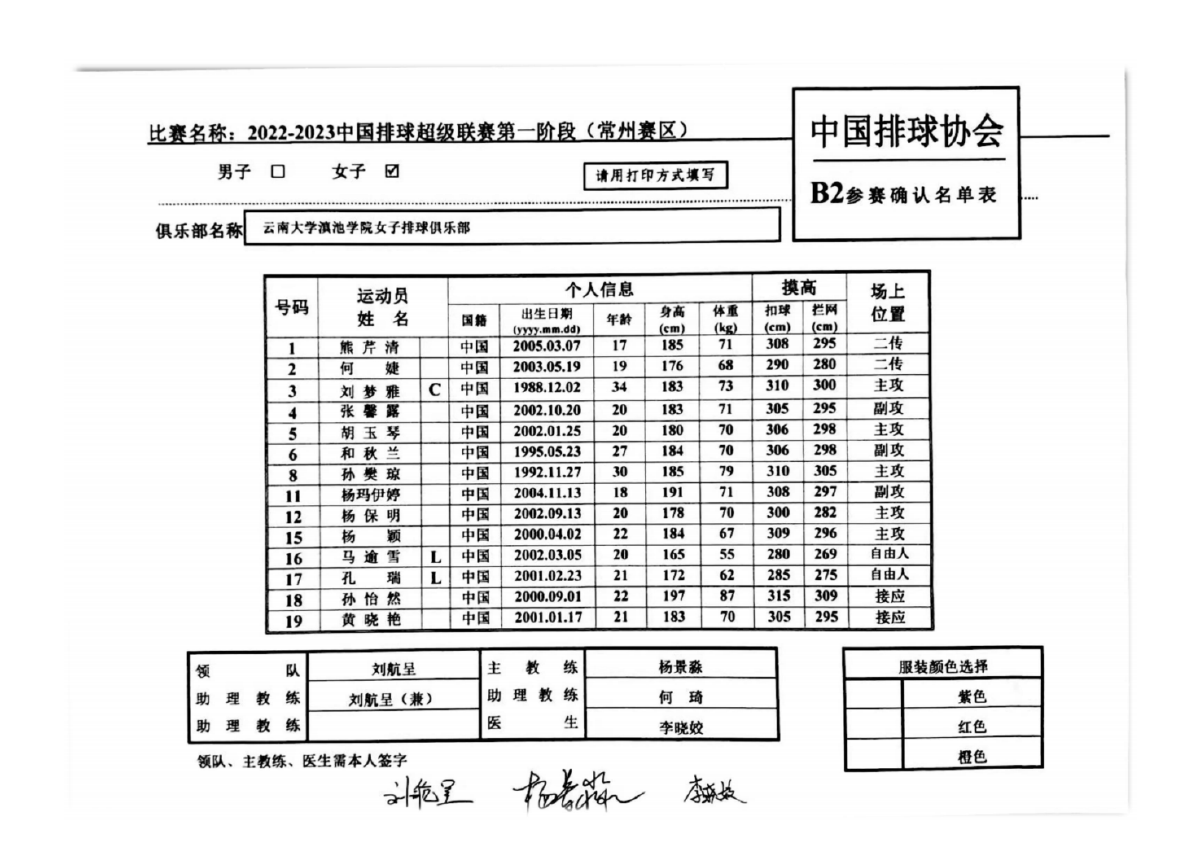 比赛名称：2022-2023中国排球超级联赛第一阶段（常州赛区）
中国排球协会
B2参赛确认名单表
男子 □ 女子 ☑
请用打印方式填写
俱乐部名称 云南大学滇池学院女子排球俱乐部
号码 运动员姓名 个人信息 摸高 场上位置
国籍 出生日期(yyyy.mm.dd) 年龄 身高(cm) 体重(kg) 扣球(cm) 拦网(cm)
1 熊芹清 中国 2005.03.07 17 185 71 308 295 二传
2 何婕 中国 2003.05.19 19 176 68 290 280 二传
3 刘梦雅 C 中国 1988.12.02 34 183 73 310 300 主攻
4 张馨露 中国 2002.10.20 20 183 71 305 295 副攻
5 胡玉琴 中国 2002.01.25 20 180 70 306 298 主攻
6 和秋兰 中国 1995.05.23 27 184 70 306 298 副攻
8 孙樊琼 中国 1992.11.27 30 185 79 310 305 主攻
11 杨玛伊婷 中国 2004.11.13 18 191 71 308 297 副攻
12 杨保明 中国 2002.09.13 20 178 70 300 282 主攻
15 杨颖 中国 2000.04.02 22 184 67 309 296 主攻
16 马逾雪 L 中国 2002.03.05 20 165 55 280 269 自由人
17 孔瑞 L 中国 2001.02.23 21 172 62 285 275 自由人
18 孙怡然 中国 2000.09.01 22 197 87 315 309 接应
19 黄晓艳 中国 2001.01.17 21 183 70 305 295 接应
领队 刘航呈 主教练 杨景淼
助理教练 刘航呈（兼） 助理教练 何琦
助理教练 医生 李晓姣
服装颜色选择
紫色
红色
橙色
领队、主教练、医生需本人签字
刘航呈 杨景淼 李晓姣